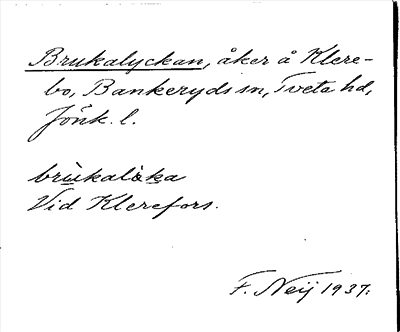 Brukalyckan, åker å Klere-
bo, Bankeryds sn, Tveta hd,
Jönk. l.
Vid Klerefors.
F. Neij 1937.